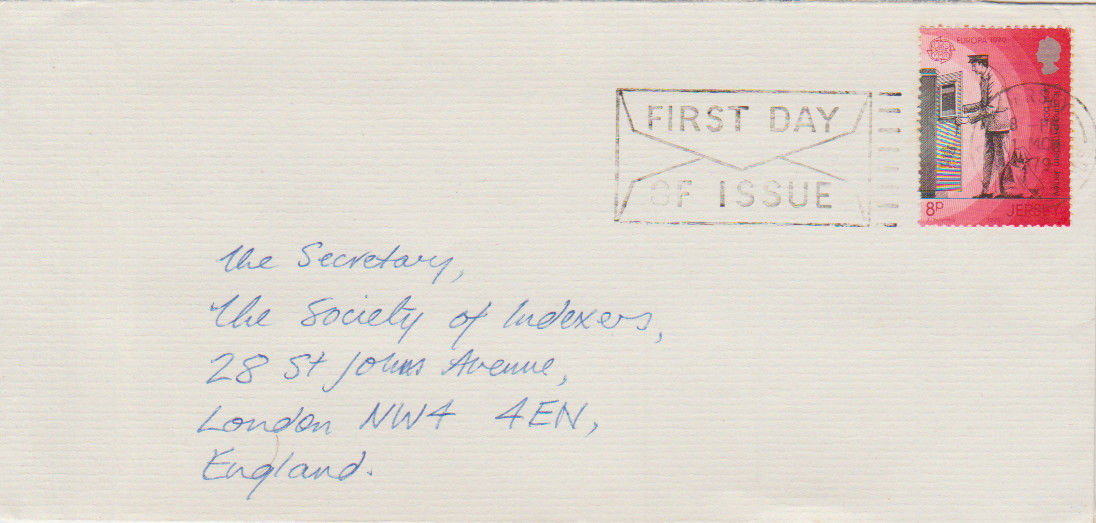 EUROPA 1979
FIRST DAY
OF ISSUE
8P
JERSEY
8
1 MO
79
The Secretary,
The Society of Indexers,
28 St Johns Avenue,
London NW4 4EN,
England.